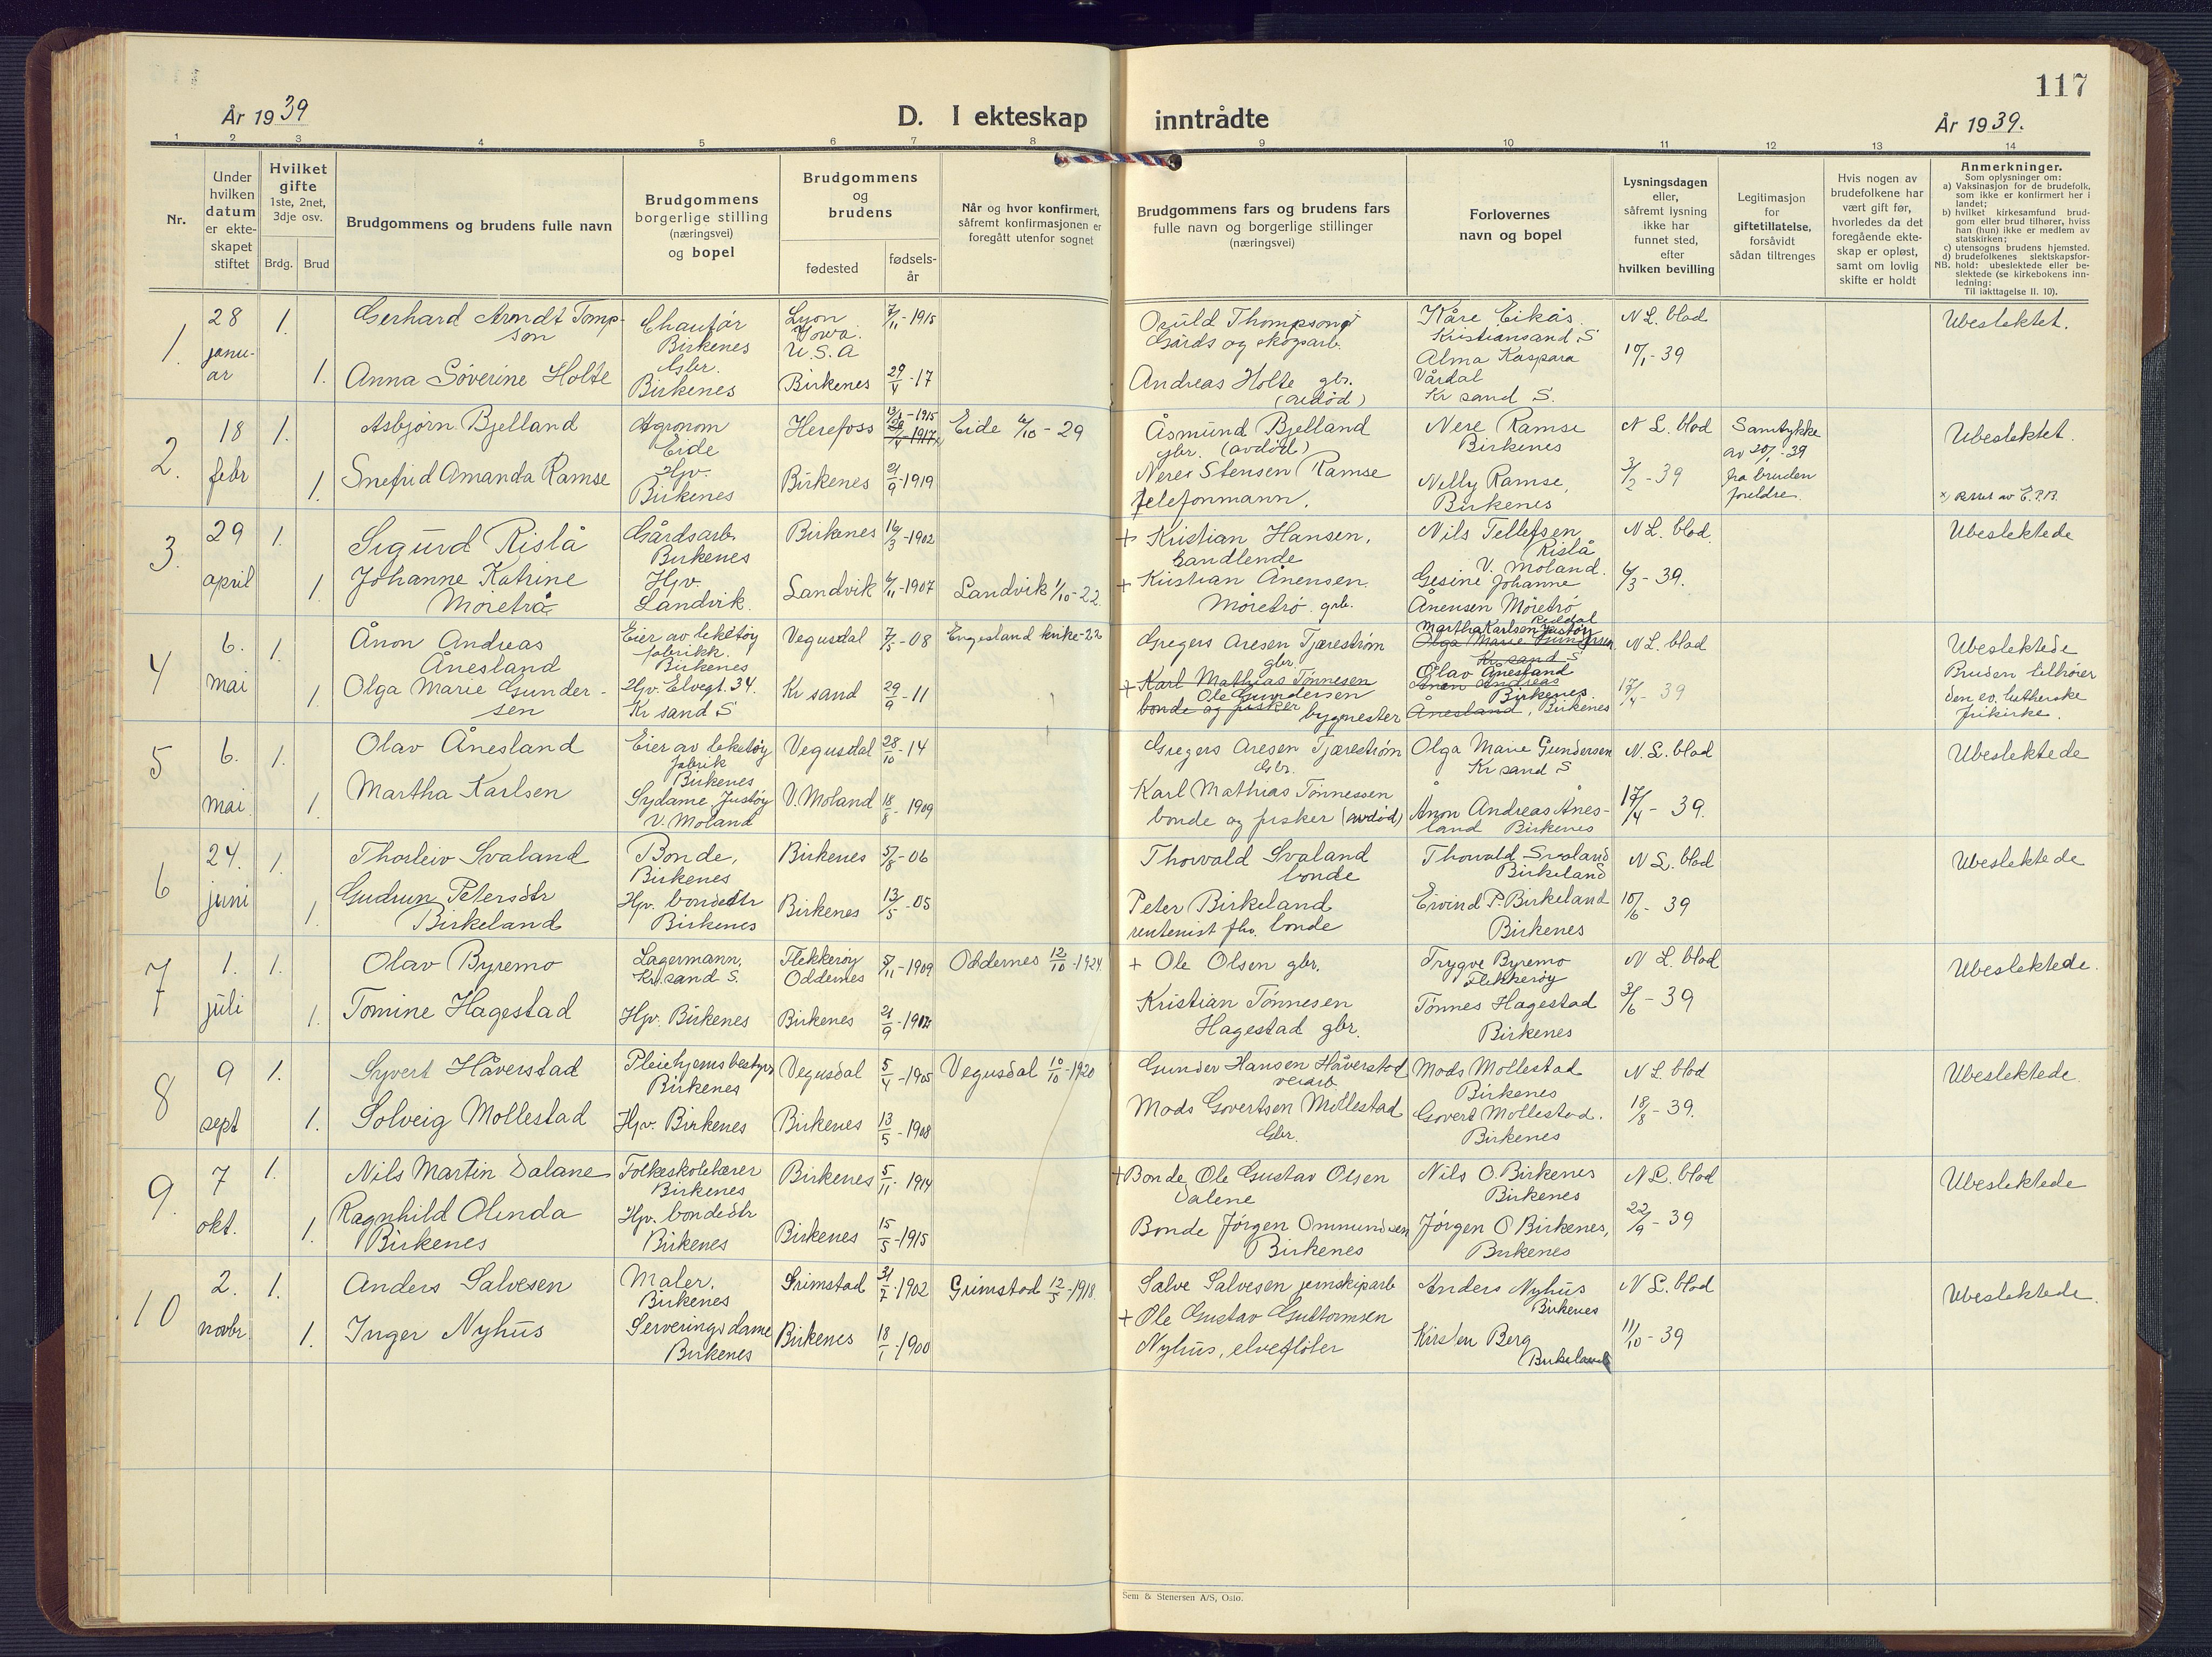 117
År 1939
D. I ekteskap inntrådte
År 1939.
1 2 3 4 5 6 7 8 9 10 11 12 13 14
Nr.
Under hvilken datum er ekte-skapet stiftet
Hvilket gifte
1ste, 2net, 3dje osv.
Brdg. Brud
Brudgommens og brudens fulle navn
Brudgommens borgerlige stilling (næringsvei) og bopel
Brudgommens og brudens
fødested
fødsels-år
Når og hvor konfirmert, såfremt konfirmasjonen er foregått utenfor sognet
Brudgommens fars og brudens fars fulle navn og borgerlige stillinger (næringsvei)
Forlovernes navn og bopel
Lysningsdagen eller, såfremt lysning ikke har funnet sted, efter hvilken bevilling
Legitimasjon for giftetillatelse, forsåvidt sådan tiltrenges
Hvis nogen av brudefolkene har vært gift før, hvorledes da det foregående ekte-skap er opløst, samt om lovlig skifte er holdt
Anmerkninger.
Som oplysninger om:
a) Vaksinasjon for de brudefolk, som ikke er konfirmert her i landet;
b) hvilket kirkesamfund brud-gom eller brud tilhører, hviss han (hun) ikke er medlem av statskirken;
c) utensogns brudens hjemsted.
d) brudefolkenes slektskapsfor-
NB. hold: ubeslektede eller be-slektede (se kirkebokens inn-ledning:
Til iakttagelse II. 10).
1. 28 januar 1. Gerhard Arndt Tompson Chaufør Birkenes Lyon Iowa. U.S.A 7/11-1915 Thompson Gårds og skogsarb. Kåre Eikås Kristiansand S N L. blad Ubeslektet.
1. Anna Søverine Holte Gbr. Birkenes Birkenes 29/4-17 Andreas Holte gbr. (avdød) Alma Kaspara Vårdal Kr sand S. 10/1-39
2. 18 febr 1. Asbjørn Bjelland Agronom Eide Herefoss 13/1-1915 Eide 6/10-29 Åsmund Bjelland gbr. (avdød) Nere Ramse Birkenes N L. blad Samtykke av 20/1-39 fra bruden foreldre. Ubeslektet.
1. Snefrid Amanda Ramse Hjv. Birkenes Birkenes 21/9-1919 Neres Stensen Ramse telefonmann. Nelly Ramse, Birkenes 3/2-39 x) Rettet av E.P.B.
3. 29 april 1. Sigurd Rislå Gårdsarb. Birkenes Birkenes 16/3-1902 + Kristian Hansen, handlende Nils Tellefsen Rislå V. Moland. N L. blad. Ubeslektede
1. Johanne Katrine Møretrø Hjv. Landvik. Landvik 6/11-1907 Landvik 1/10-22. + Kristian Ånensen Møretrø. grb. Gesine Johanne Ånensen Møretrø Reddal 6/3-39.
4 6. mai 1. Ånon Andreas Ånesland Eier av leketøy fabrikk. Birkenes Vegusdal 7/5-08 Engesland kirke-22 Gregers Aresen Tjærestrøm gbr. Martha Karlsen Justøy Olga Marie Gundersen Kr sand S N L. blad Ubeslektede
1. Olga Marie Gundersen Hjv. Elvegt. 34. Kr sand S Kr sand 29/9-11 + Karl Mathias Tønnesen bonde og fisker Ole Gundersen bygmester Olav Ånesland Ånon Andreas Birkenes. Ånesland, Birkenes 17/4-39 Bruden tilhører den ev. lutherske frikirke.
5 6. mai 1. Olav Ånesland Eier av leketøy fabrik Birkenes Vegusdal 28/10-14 Gregers Aresen Tjærestrøm Gbr. Olga Marie Gundersen Kr sand S N. L. blad Ubeslektede
1. Martha Karlsen Sydame Justøy V. Moland V. Moland 18/8-1909 Karl Mathias Tønnessen bonde og fisker (avdød) Ånon Andreas Ånesland Birkenes 17/4-39.
6 24. juni 1. Thorleiv Svaland Bonde, Birkenes Birkenes 5/8-06 Thorvald Svaland bonde Thorvald Svaland Birkeland N L. blad Ubeslektede
1. Gudrun Petersdtr Birkeland Hjv. bondedtr Birkenes Birkenes 13/5-05 Peter Birkeland rentenist fhv. bonde Eivind P. Birkeland Birkenes 10/6-39
7 1. juli 1. Olav Byremo Lagermann, Kr.sand S. Flekkerøy Oddernes 5/11-1909 Oddernes 12/10-1924 + Ole Olsen gbr. Trygve Byremo Flekkerøy N L. blad Ubeslektede.
1. Tomine Hagestad Hjv. Birkenes Birkenes 21/9 Kristian Tønnesen Hagestad gbr. Tønnes Hagestad Birkenes 3/6-39
8 9 sept 1. Syvert Håverstad Pleiehjemsbestyrer Birkenes Vegusdal 5/4-1905 Vegusdal 10/10-1920 Gunder Hansen Håverstad veiarb. Mads Mollestad Birkenes N L. blad Ubeslektede.
1. Solveig Mollestad Hjv. Birkenes Birkenes 13/5-1908 Mads Govertsen Mollestad Gbr. Govert Mollestad. Birkenes 18/8-39.
9. 7 okt. 1. Nils Martin Dalane Folkeskolelærer Birkenes Birkenes 5/11-1914 + Bonde Ole Gustav Olsen Dalene Nils O. Birkenes Birkenes N L. blad Ubeslektede
1. Ragnhild Olinda Birkenes Hjv. bondedtr Birkenes Birkenes 15/5-1915 Bonde Jørgen Ommundsen Birkenes Jørgen O Birkenes, Birkenes 22/9-39
10 2. novbr. 1. Anders Salvesen Maler, Birkenes Grimstad 31/7-1902 Grimstad 12/5-1918. Salve Salvesen jernskiparb Anders Nyhus Birkenes N L. blad Ubeslektede.
1. Inger Nyhus Serveringsdame Birkenes Birkenes 18/1-1900 + Ole Gustav Guttormsen Nyhus, elvefløter Kirsten Berg Birkeland 11/10-39
Sem & Stenersen A/S, Oslo.